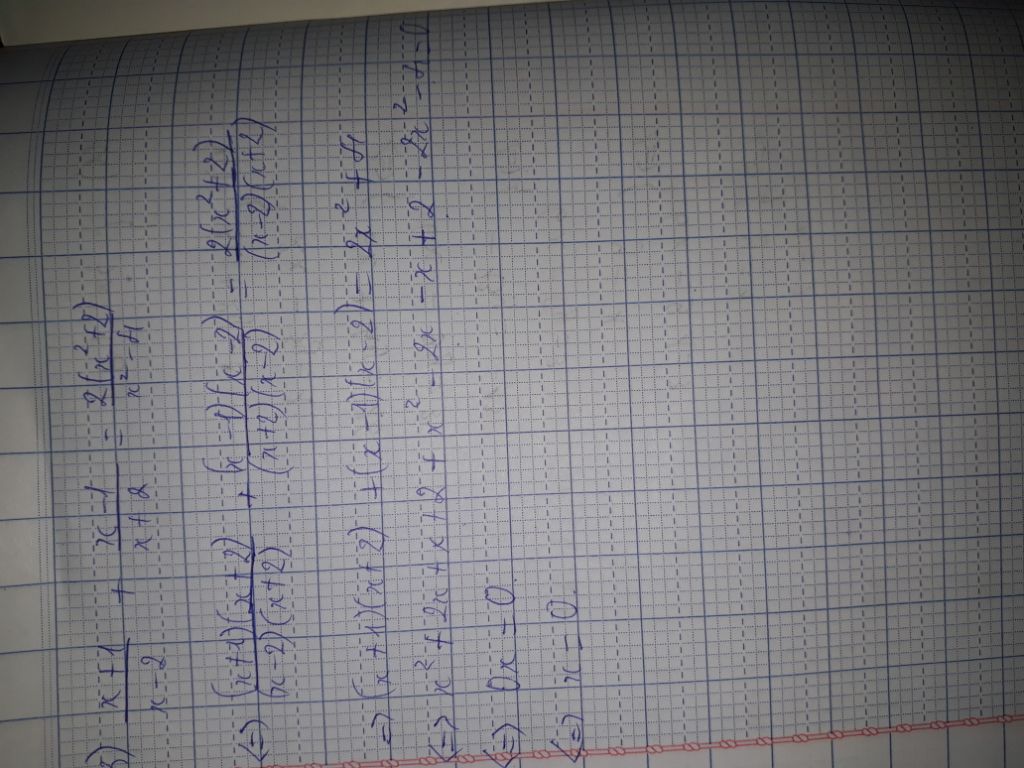 \frac{x+1}{x-2} + \frac{x-1}{x+2} = \frac{2(x²+2)}{x²-4}
<=> \frac{(x+1)(x+2)}{(x-2)(x+2)} + \frac{(x-1)(x-2)}{(x+2)(x-2)} = \frac{2(x²+2)}{(x-2)(x+2)}
=> (x+1)(x+2) + (x-1)(x-2) = 2x² + 4
<=> x² + 2x + x + 2 + x² - 2x - x + 2 - 2x² - 4 = 0
<=> 0x = 0
<=> x = 0